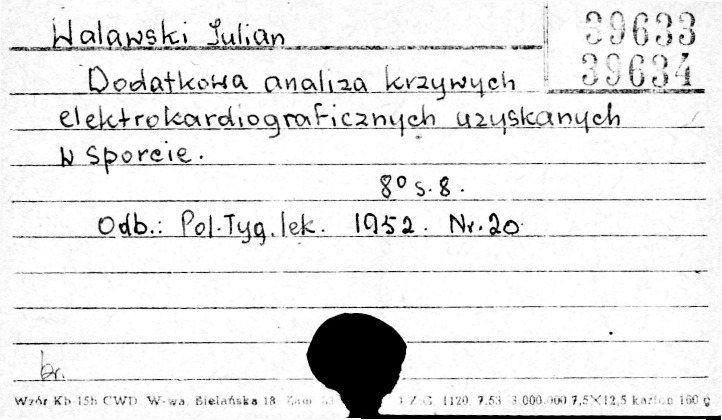 Walawski Julian
39633
39634
Dodatkowa analiza krzywych
elektrokardiograficznych uzyskanych
w sporcie.
8° s. 8.
Odb.: Pol. Tyg. lek. 1952. Nr. 20
br.
Wzór Kb-15h CWD W-wa, Bielańska 18 Zam Z.G. 1120. 7.53 3.000.000 7,5×12,5 karton 160 g